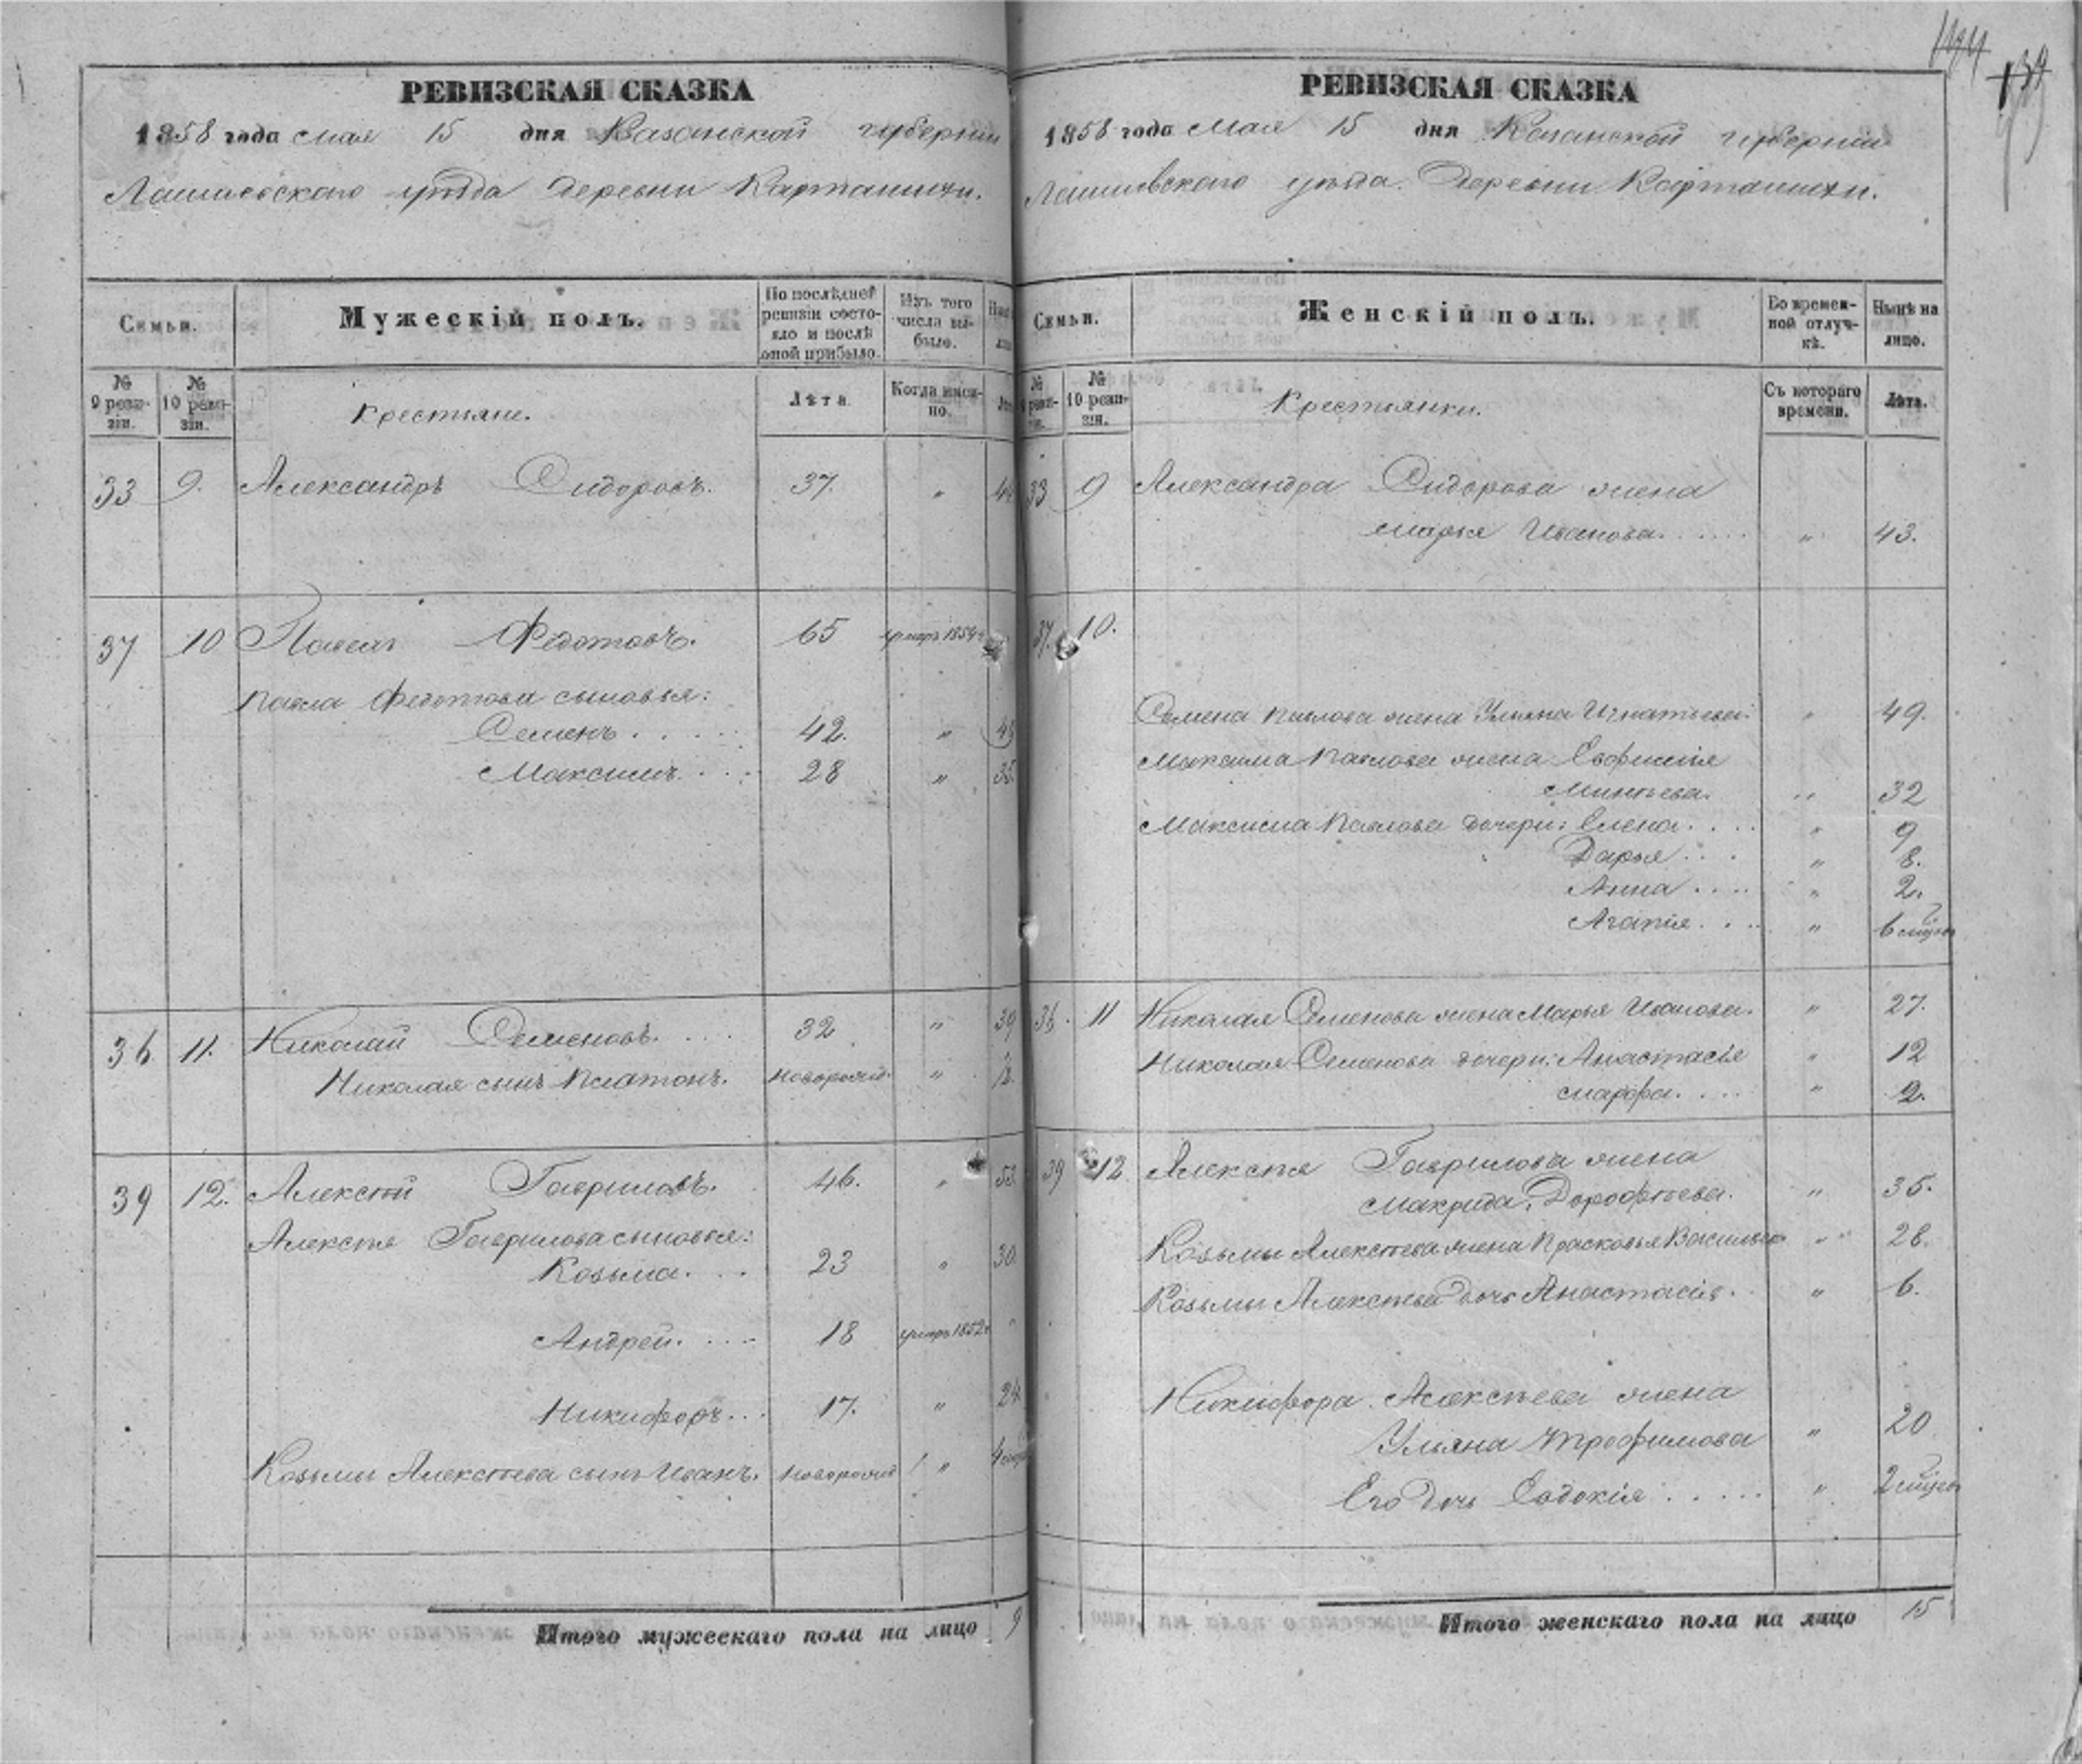 РЕВИЗСКАЯ СКАЗКА
1858 года мая 15 дня Казанской губернии
Лаишевскаго уѣзда деревни Карташихи.
Семьи.
Мужескій полъ.
По послѣдней ревизіи состояло и послѣ оной прибыло.
Изъ того числа выбыло.
№ 9 ревизіи.
№ 10 ревизіи.
Крестьяне.
Лѣта
Когда именно.
33 9. Александръ Сидоровъ. 37. „ 44
37 10 Павелъ Федотовъ. 65 умеръ 1854
Павла Федотова сыновья:
Семенъ . . . . . 42. „ 49
Максимъ . . . . 28 „ 35.
36 11. Николай Семеновъ. . . . 32 „ 39
Николая сынъ Платонъ. новорожд. „
39 12. Алексѣй Гавриловъ. 46. „ 53.
Алексѣя Гаврилова сыновья:
Козьма. . . . 23 „ 30.
Андрей. . . . 18 умеръ 1852
Никифоръ. . . 17. „ 24
Козьмы Алексѣева сынъ Иванъ. новорожд „ 4
Итого мужескаго пола на лицо 9
144
139
РЕВИЗСКАЯ СКАЗКА
1858 года Мая 15 дня Казанской губерніи
Лаишевскаго уѣзда. Деревни Карташихи.
Семьи.
Женскій полъ.
Во временной отлучкѣ.
Нынѣ на лицо.
№ 9 ревизіи.
№ 10 ревизіи.
Крестьянки.
Съ котораго времени.
Лѣта.
33 9 Александра Сидорова жена
Марья Иванова. . . . . . „ 43.
37. 10.
Семена Павлова жена Ульяна Игнатьева „ 49.
Максима Павлова жена Евфимія
Минѣева. „ 32
Максима Павлова дочери: Елена. . . . „ 9
Дарья . . . „ 8.
Анна . . . . „ 2.
Агапія. . . . „ 6 мѣсяц
36. 11 Николая Семенова жена Марья Иванова. „ 27.
Николая Семенова дочери: Анастасія „ 12
Марфа. . . . „ 2.
39 12 Алексѣя Гаврилова жена
Макрида Дорофѣева. „ 35.
Козьмы Алексѣева жена Прасковья Васильева „ 28.
Козьмы Алексѣева дочь Анастасія. . „ 6.
Никифора Алексѣева жена
Ульяна Трофимова „ 20
Его дочь Евдокія . . . . . „ 2 мѣсяц
Итого женскаго пола на лицо 15